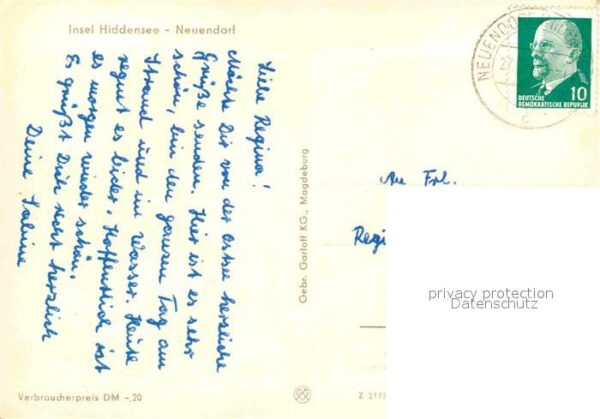 Insel Hiddensee - Neuendorf
Liebe Regina!
Möchte Dir von der Ostsee herzliche
Grüße senden. Hier ist es sehr
schön, bin den ganzen Tag am
Strand und im Wasser. Heute
regnet es leider. Hoffentlich ist
es morgen wieder schön.
Es grüßt Dich recht herzlich
Deine Sabine
Verbraucherpreis DM -,20
Gebr. Garloff KG., Magdeburg
NEUENDORF
10
DEUTSCHE
DEMOKRATISCHE REPUBLIK
An Frl.
Regi
privacy protection
Datenschutz
Z 2175